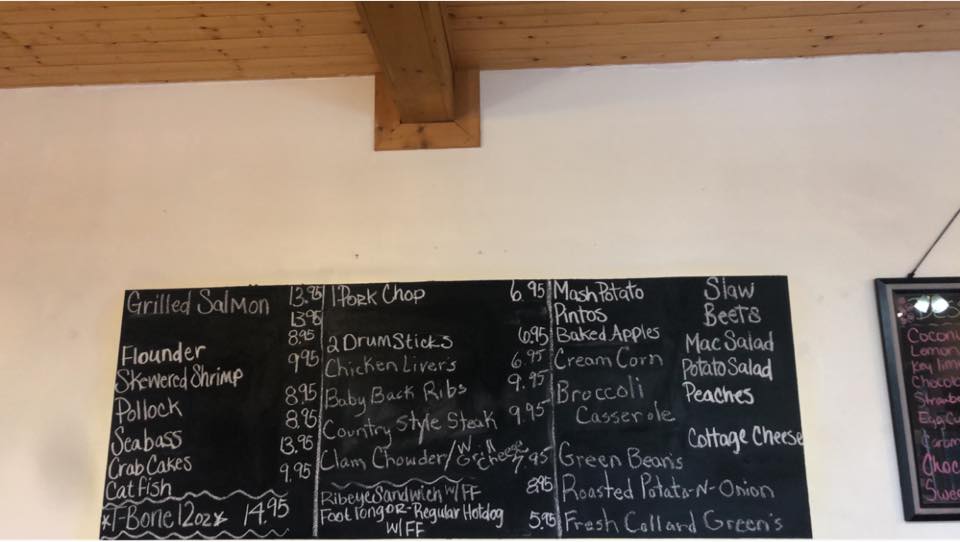 Grilled Salmon 13.95
13.95
Flounder 8.95
Skewered Shrimp 9.95
Pollock 8.95
Seabass 8.95
Crab Cakes 13.95
Catfish 9.95
*T-Bone 12oz* 14.95
1 Pork Chop 6.95
2 Drum Sticks 6.95
Chicken Liver's 6.95
Baby Back Ribs 9.95
Country Style Steak 9.95
Clam Chowder/W Grill Cheese 7.95
Ribeye Sandwich W/FF 8.95
Foot long-OR-Regular Hotdog
W/FF 5.95
Mash Potato
Pintos
Baked Apples
Cream Corn
Broccoli
Casserole
Green Bean's
Roasted Potato-N-Onion
Fresh Collard Green's
Slaw
Beets
Mac Salad
Potato Salad
Peaches
Cottage Cheese
DES
Coconu
Lemon
Key lime
Chocol
Strawbe
Egg Cu
Caram
Choc
"Swee